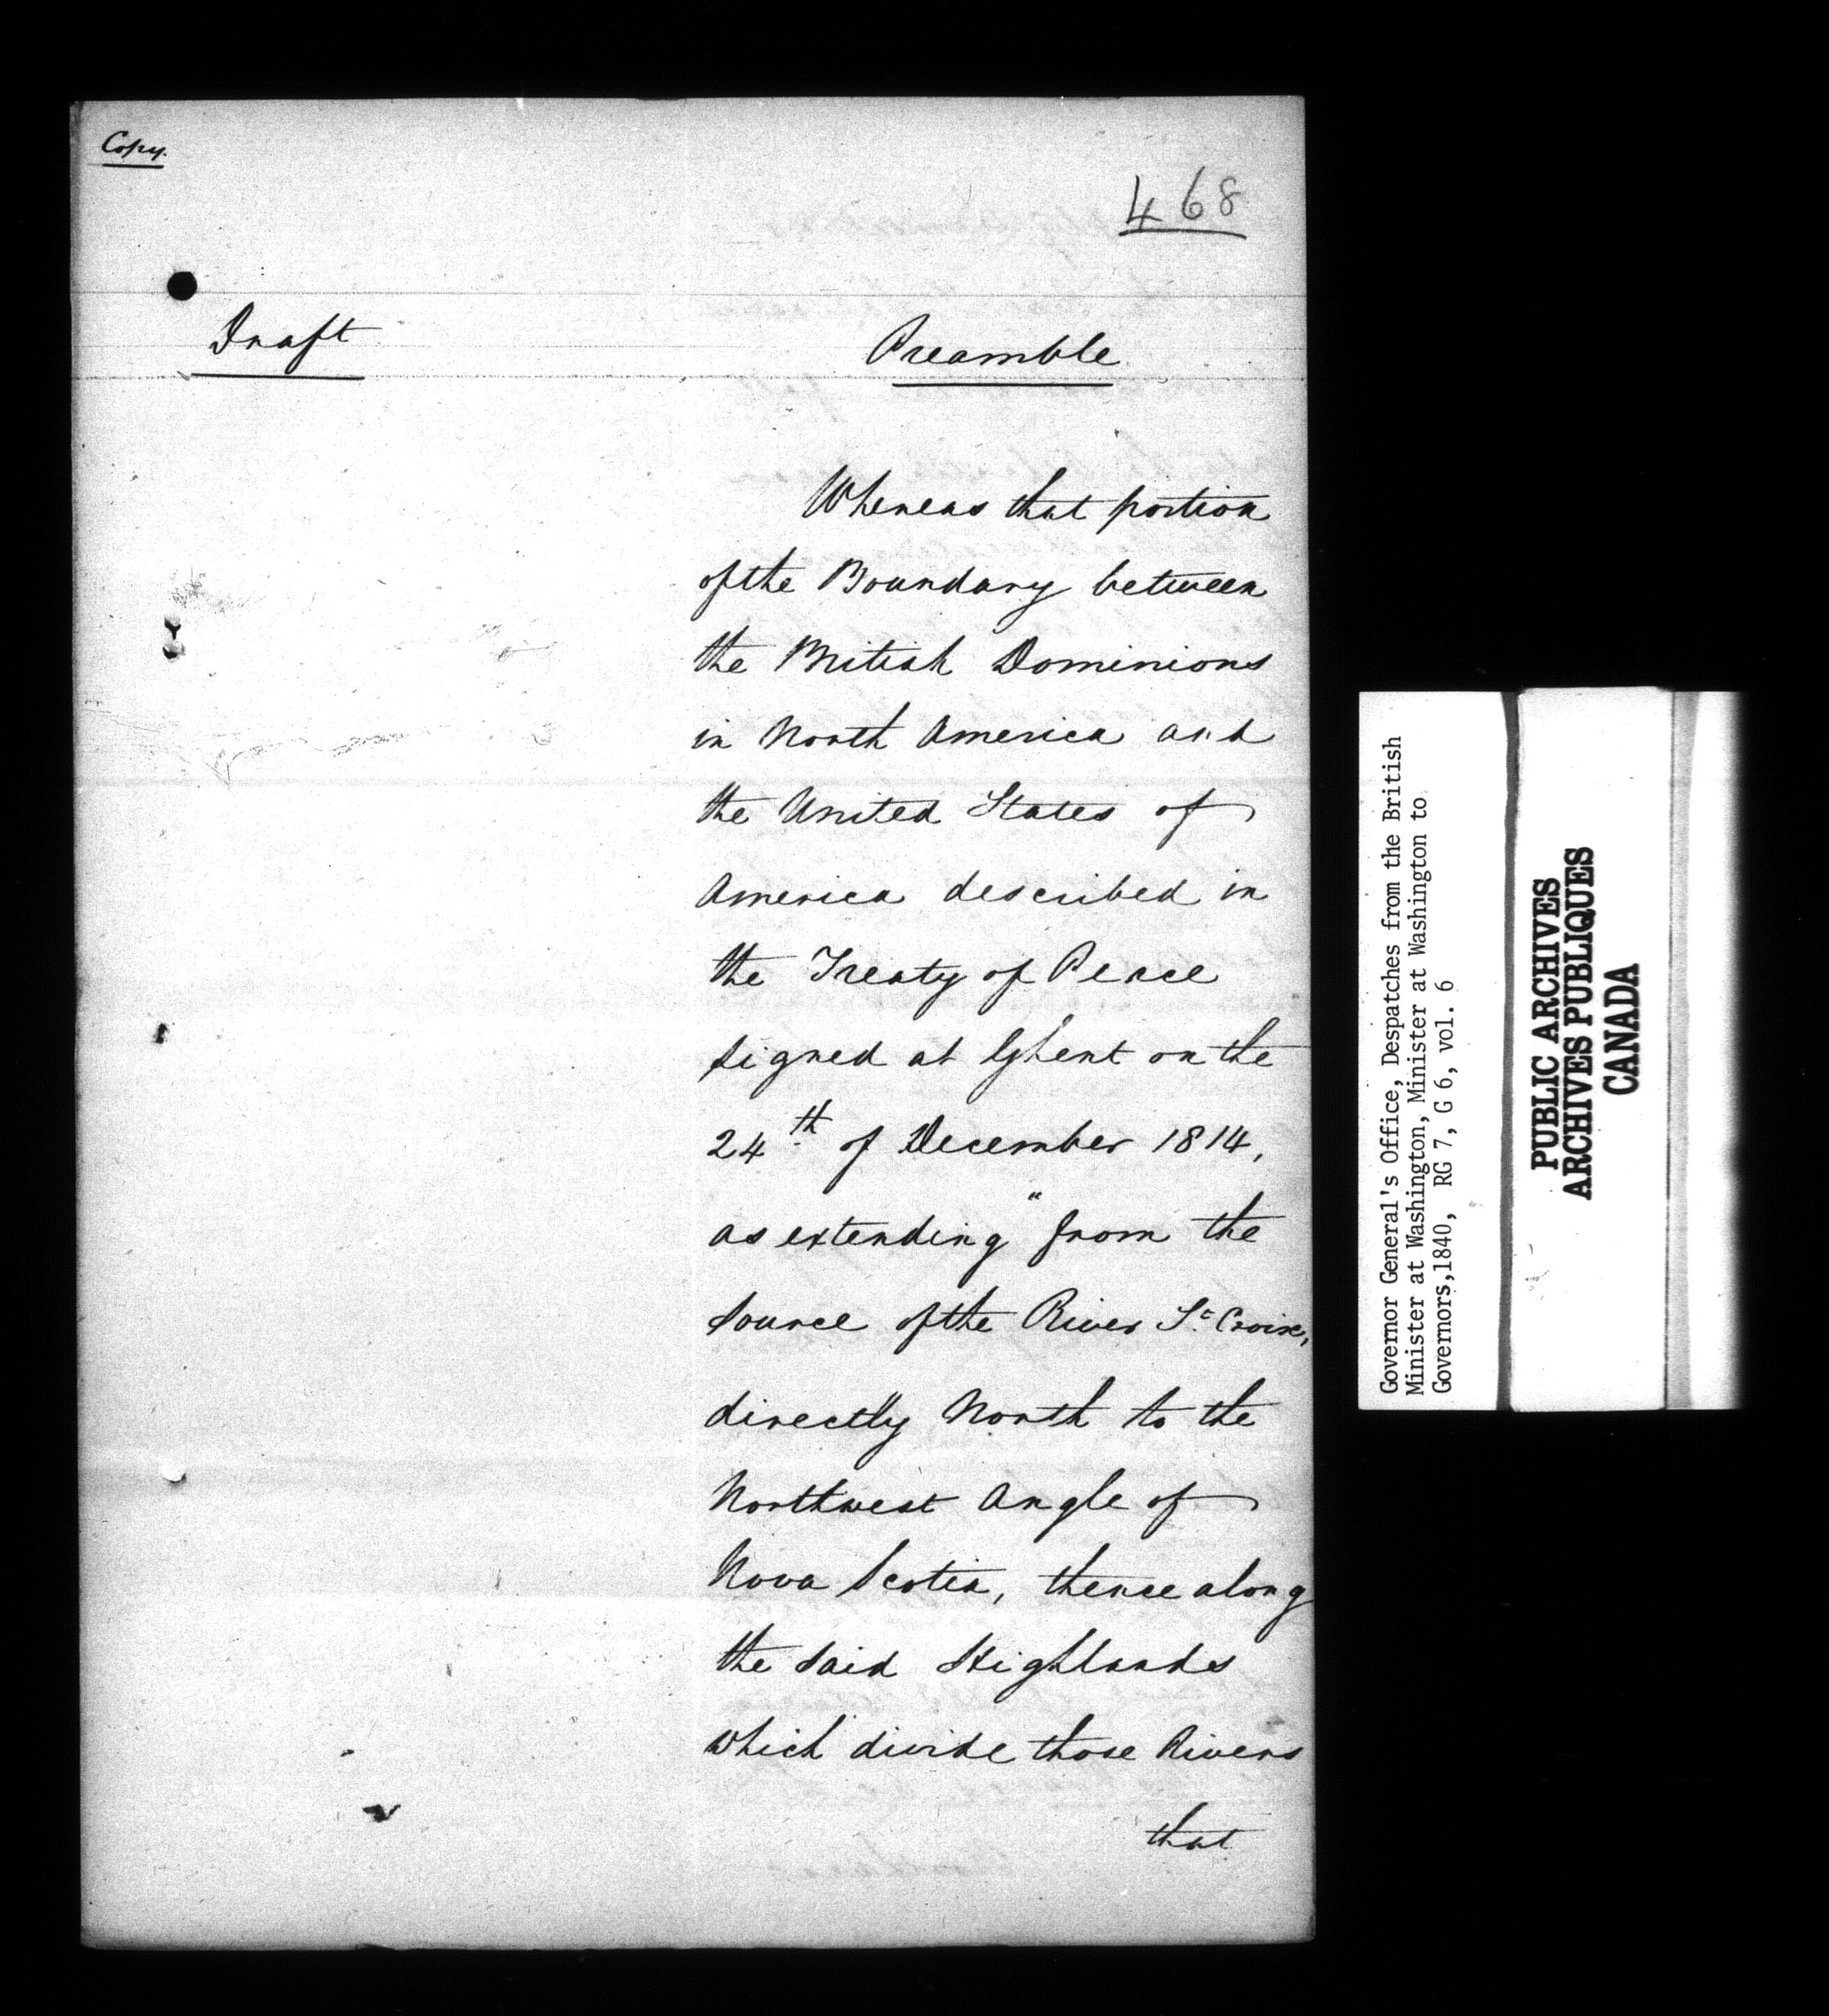 Copy.
468
Draft
Preamble
Whereas that portion
of the Boundary between
the British Dominions
in North America and
the United States of
America described in
the Treaty of Peace
signed at Ghent on the
24th of December 1814,
as extending "from the
source of the River St. Croix,
directly North to the
Northwest Angle of
Nova Scotia, thence along
the said Highlands
which divide those Rivers
that
Governor General's Office, Despatches from the British
Minister at Washington, Minister at Washington to
Governors,1840, RG 7, G 6, vol. 6
PUBLIC ARCHIVES
ARCHIVES PUBLIQUES
CANADA